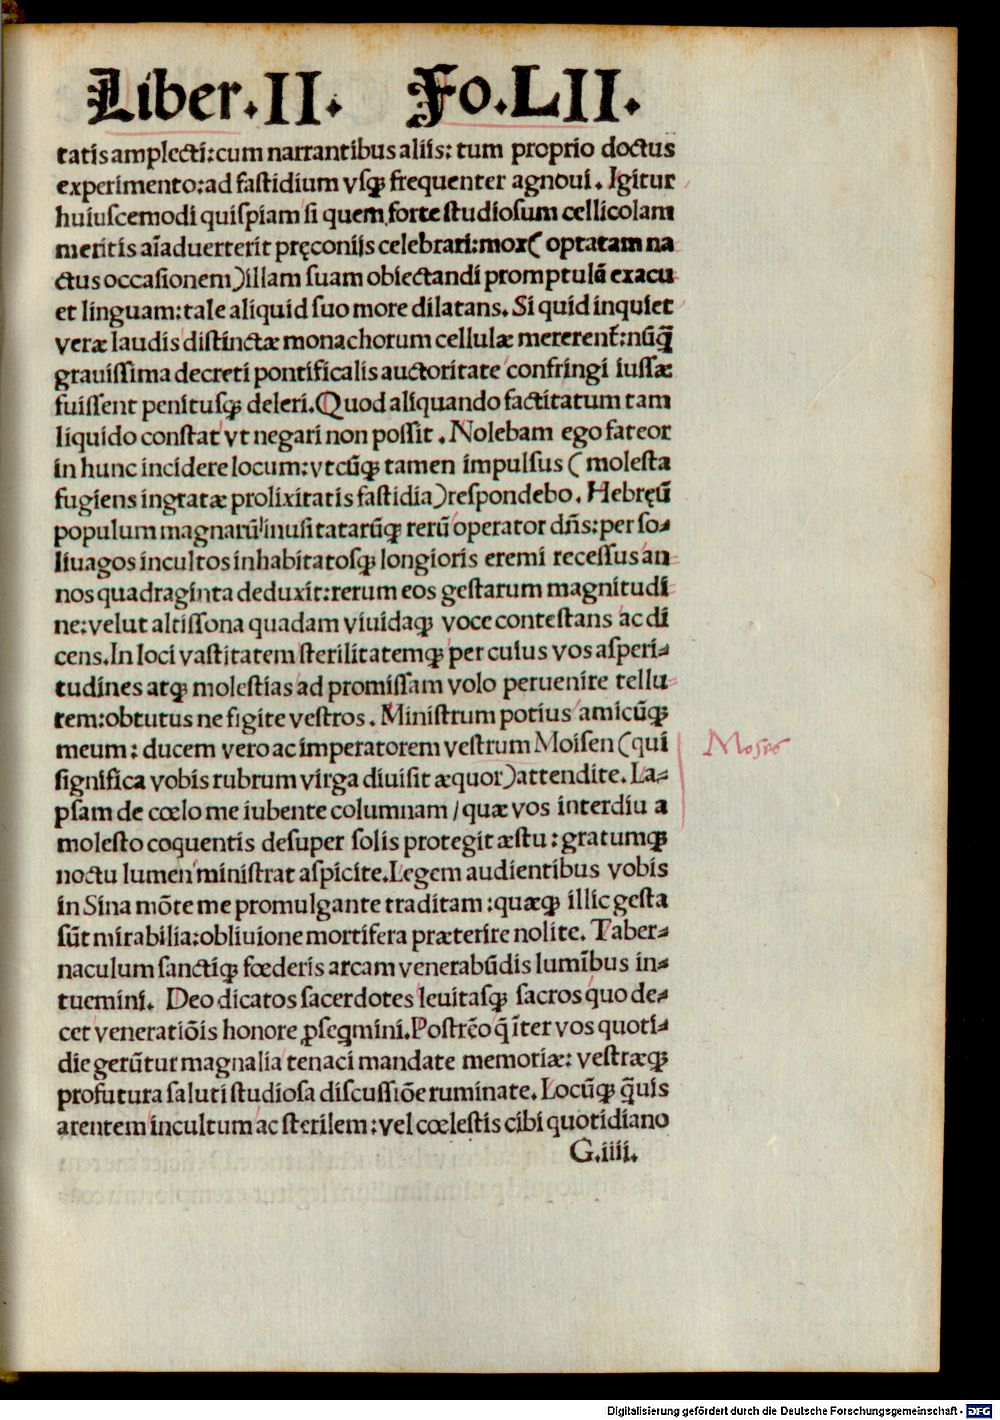 Liber.II. Fo.LII.
tatis amplecti: cum narrantibus aliis: tum proprio doctus
experimento: ad fastidium vsqꝫ frequenter agnoui. Igitur
huiuscemodi quispiam si quem forte studiosum cellicolam
meritis aīaduerterit pręconijs celebrari: mox (optatam na
ctus occasionem) illam suam obiectandi promptulā exacu
et linguam: tale aliquid suo more dilatans. Si quid inquiet
veræ laudis distinctæ monachorum cellulæ mererent᷑: nūq̄
grauissima decreti pontificalis auctoritate confringi iussæ
fuissent penitusqꝫ deleri. Quod aliquando factitatum tam
liquido constat vt negari non possit. Nolebam ego fateor
in hunc incidere locum: vtcūqꝫ tamen impulsus (molesta
fugiens ingratæ prolixitatis fastidia) respondebo. Hebręū
populum magnarū inusitatarūqꝫ rerū operator dn̄s: per so⸗
liuagos incultos inhabitatosqꝫ longioris eremi recessus an
nos quadraginta deduxit: rerum eos gestarum magnitudi
ne: velut altissona quadam viuidaqꝫ voce contestans ac di
cens. In loci vastitatem sterilitatemqꝫ per cuius vos asperi⸗
tudines atqꝫ molestias ad promissam volo peruenire tellu
rem: obtutus ne figite vestros. Ministrum potius amicūqꝫ
meum: ducem vero ac imperatorem vestrum Moisen (qui
significa vobis rubrum virga diuisit æquor) attendite. La⸗
psam de cœlo me iubente columnam / quæ vos interdiu a
molesto coquentis desuper solis protegit æstu: gratumqꝫ
noctu lumen ministrat aspicite. Legem audientibus vobis
in Sina mōte me promulgante traditam: quæqꝫ illic gesta
sūt mirabilia: obliuione mortifera præterire nolite. Taber⸗
naculum sanctiqꝫ fœderis arcam venerabūdis lumībus in⸗
tuemini. Deo dicatos sacerdotes leuitasqꝫ sacros quo de⸗
cet veneratiōis honore ꝓseq̄mini. Postrēo q̄ īter vos quoti⸗
die gerūtur magnalia tenaci mandate memoriæ: vestræqꝫ
profutura saluti studiosa discussiōe ruminate. Locūqꝫ q̄uis
arentem incultum ac sterilem: vel cœlestis cibi quotidiano
G.iiii.
Moses
Digitalisierung gefördert durch die Deutsche Forschungsgemeinschaft - DFG